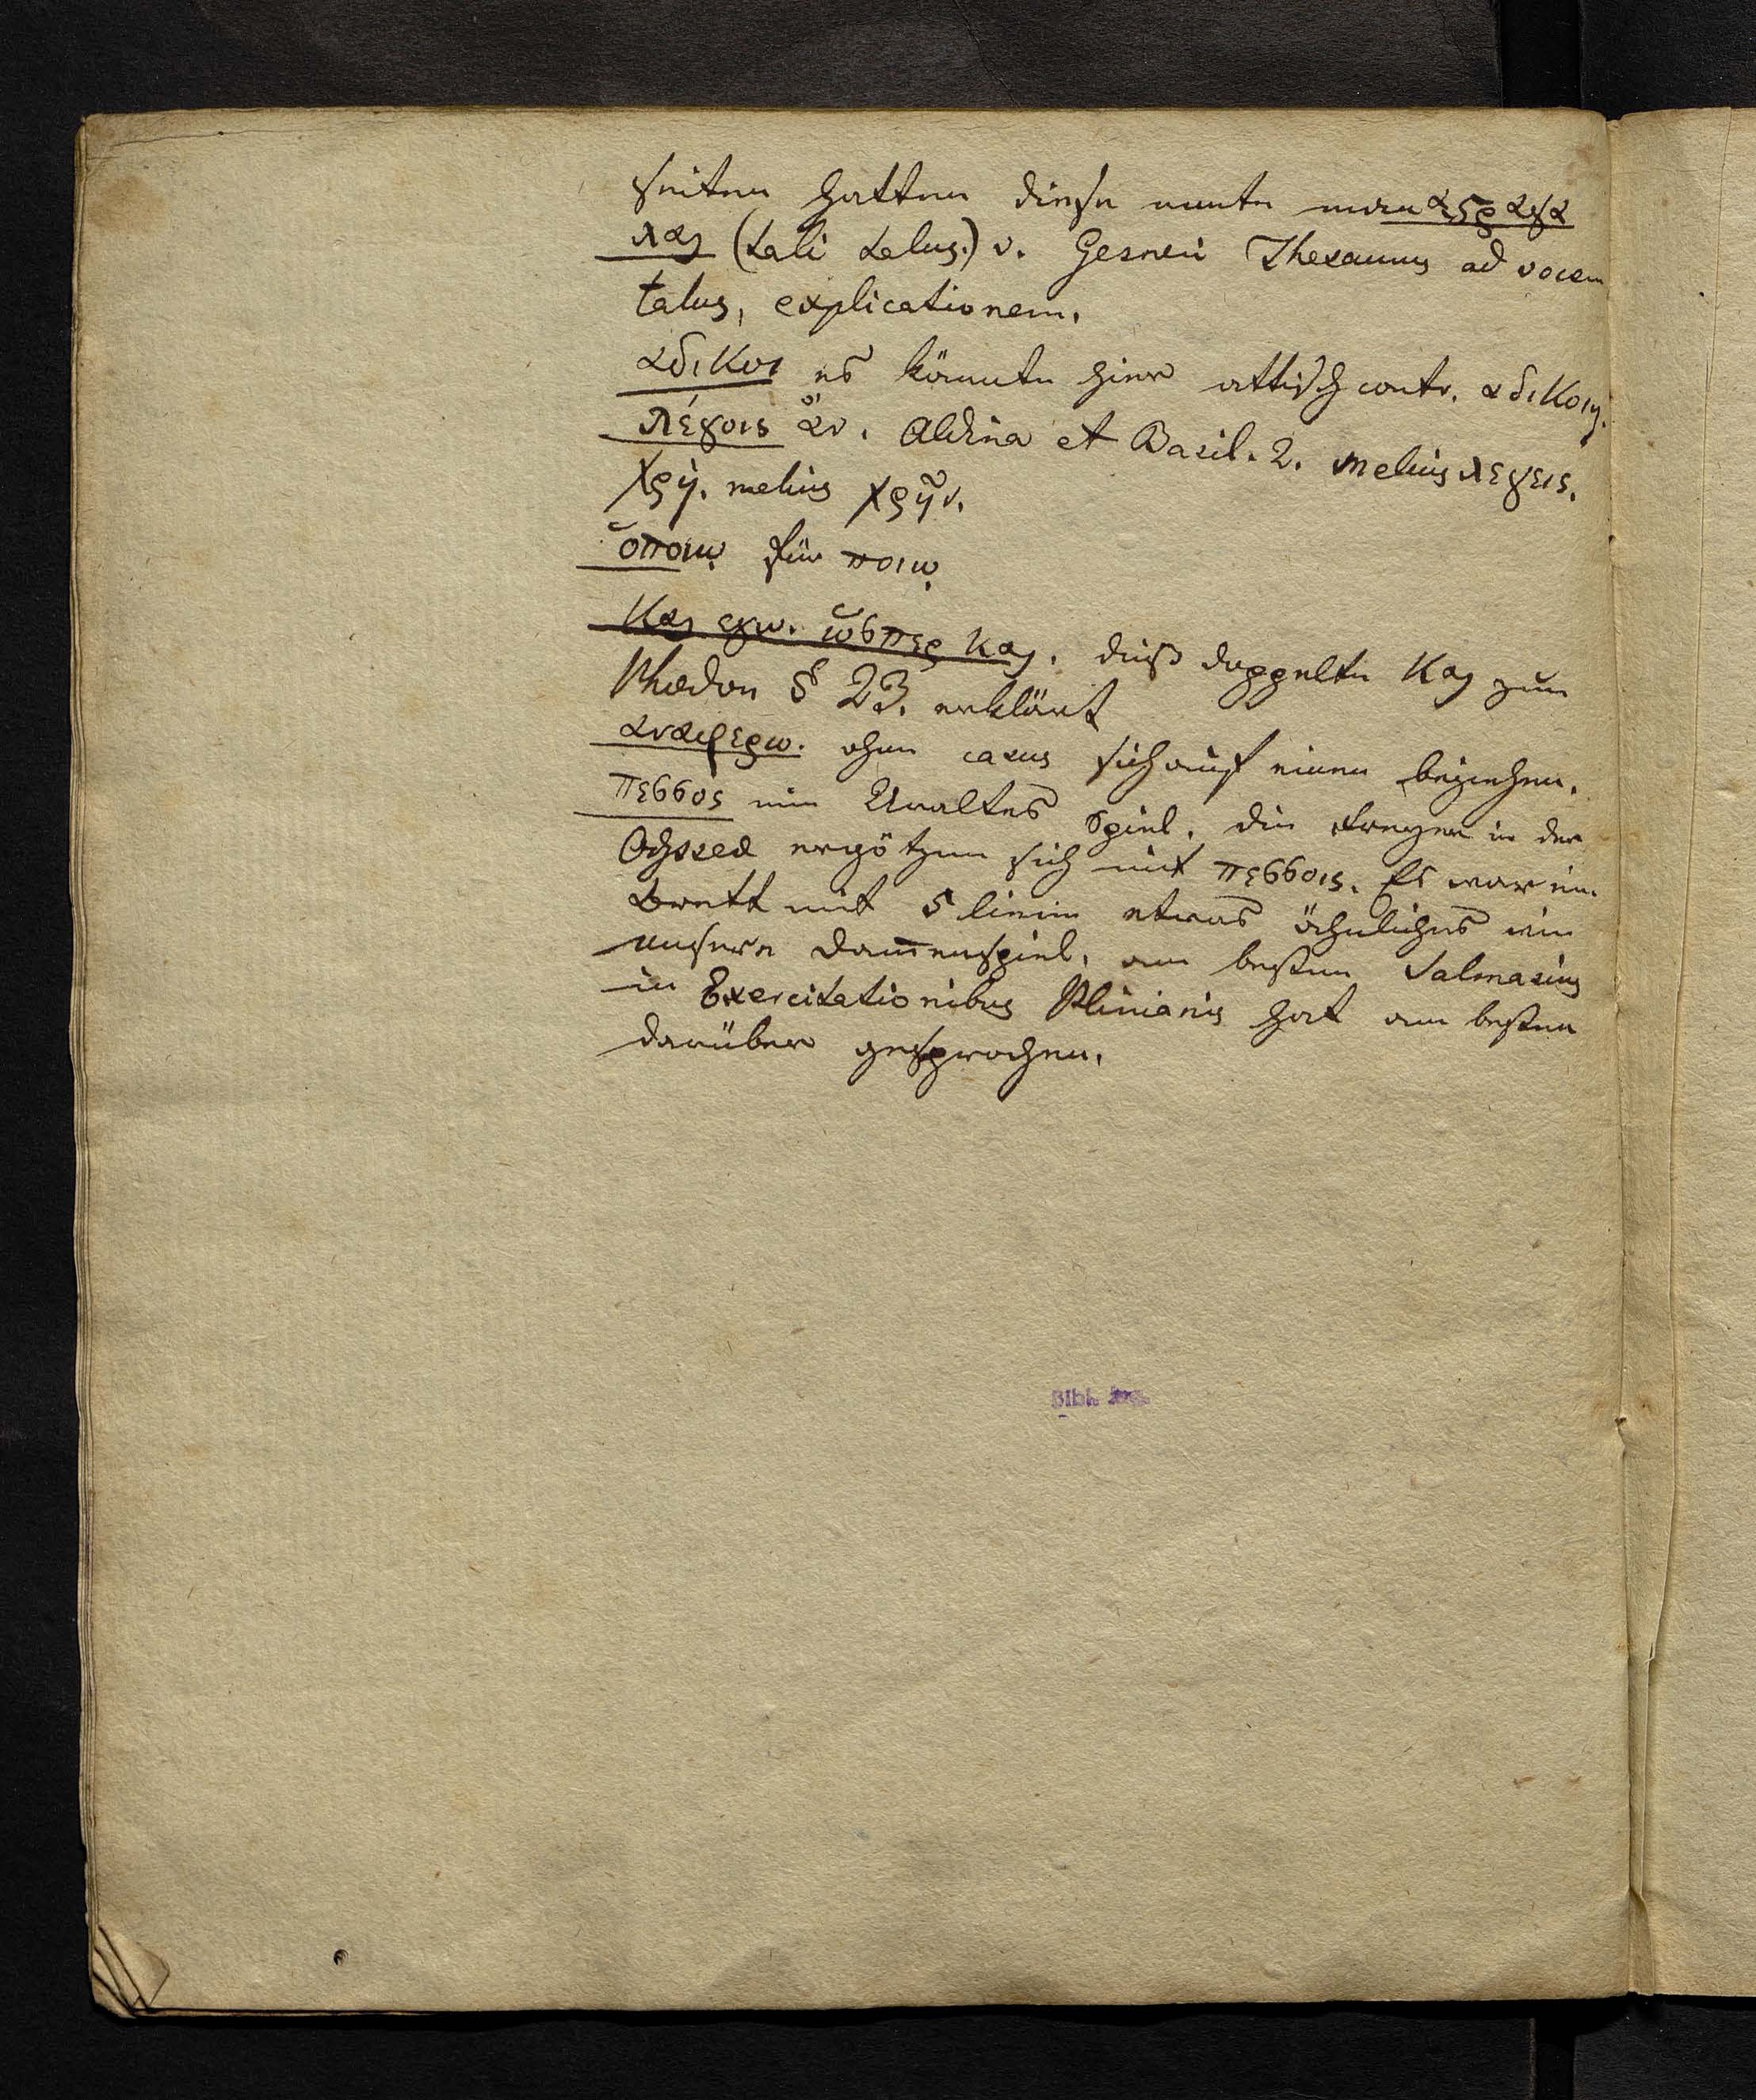 seiten hatten diese nante man αςραγα
λαι (tali talus.) v. Gesneri Thesaurus ad vocem
talus, explicationem.
αδικοι es könnte hier attisch contr. αδικοιη.
λέγοις ἂν. Aldina et Basil. 2. melius λεγεις.
χρη. melius χρῆν.
ὁποιῳ für ποιῳ
Και εγω. ὥσπερ και. dieß doppelte Και zum
Phædon § 23. erklärt
αναφερω. ohne casus sich auf einen beziehen.
πεσσος ein Uraltes Spiel. die Freyer in der
Odyssea ergötzen sich mit πεσσοις. Es war ein
Brett mit 5 linien etwas ähnliches wie
unsere Dam̅enspiel. am besten Salmasius
in Exercitationibus Plinianis hat am besten
darüber gesprochen.
Bibl.